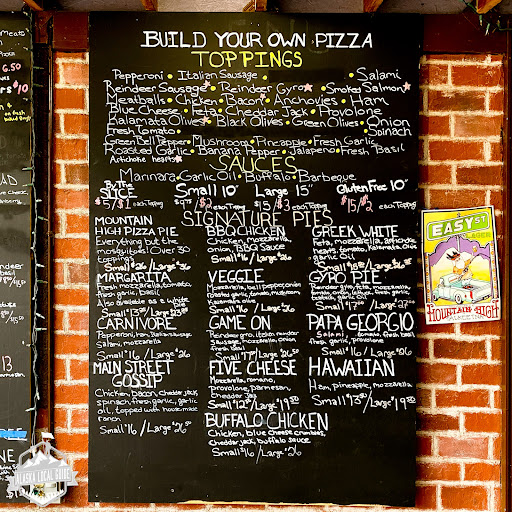 BUILD YOUR OWN PIZZA
TOPPINGS
Pepperoni • Italian Sausage • Salami
Reindeer Sausage • Reindeer Gyro • Smoked Salmon
Meatballs • Chicken • Bacon • Anchovies • Ham
Blue Cheese • Feta • Cheddar Jack • Provolone
Kalamata Olives • Black Olives • Green Olives • Onion
Fresh Tomato • Spinach
Green Bell Pepper • Mushroom • Pineapple • Fresh Garlic
Roasted Garlic • Banana Pepper • Jalapeno • Fresh Basil
Artichoke hearts
SAUCES
Marinara • Garlic Oil • Buffalo • Barbeque
By The SLICE Small 10" Large 15" Gluten Free 10"
$5/$1 each Topping /$2 each Topping /$3 each Topping $15/$2 each Topping
SIGNATURE PIES
MOUNTAIN
HIGH PIZZA PIE
Everything but the
mountains! Over 30
toppings!
Small $26/Large $36
MARGARITA
Fresh mozzarella, tomato,
fresh garlic, basil
Also available as a white
CARNIVORE
Pepperoni, ham, italian
sausage, salami
Small $16/Large $26
MAIN STREET
GOSSIP
Chicken, bacon, cheddar jack,
spinach, fresh garlic, garlic
oil, topped with house made
ranch
Small $16/Large $26
BBQ CHICKEN
Chicken, mozzarella,
onion, BBQ sauce
Small $16/Large $26
VEGGIE
Mozzarella, bell pepper, onion
roasted garlic, tomato, mushroom
Small $16/Large $26
GAME ON
Reindeer gyro, italian reindeer
sausage, mozzarella, onion,
fresh basil
Small $17/Large $26
FIVE CHEESE
Mozzarella, romano,
provolone, parmesan,
cheddar jack
Small $12/Large $19
BUFFALO CHICKEN
Chicken, blue cheese crumbles,
cheddar jack, buffalo sauce
Small $16/Large $26
GREEK WHITE
Feta, mozzarella, artichoke
hearts, tomato, kalamata, olives
garlic oil
Small $16/Large $26
GYRO PIE
Reindeer gyro, feta, mozzarella,
Small $17/Large $27
PAPA GEORGIO
Salami, tomato, fresh basil,
fresh garlic, provolone
Small $16/Large $26
HAWAIIAN
Ham, pineapple, mozzarella
Small $13/Large $19
EASY ST
LAGER
MOUNTAIN HIGH
ALASKA LOCAL GUIDE